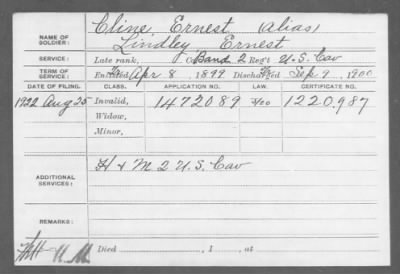 NAME OF SOLDIER: Cline, Ernest (alias)
Lindley Ernest
SERVICE: Late rank, Co. Band 2 Reg't U.S. Cav
TERM OF SERVICE: Enlisted Apr 8, 1899 Discharged Sep 9, 1900
DATE OF FILING. CLASS. APPLICATION NO. LAW. CERTIFICATE NO.
1922 Aug 25 Invalid, 1472089 1220.987
Widow,
Minor,
ADDITIONAL SERVICES: H & M 2 U.S. Cav
REMARKS:
Died , 1 , at